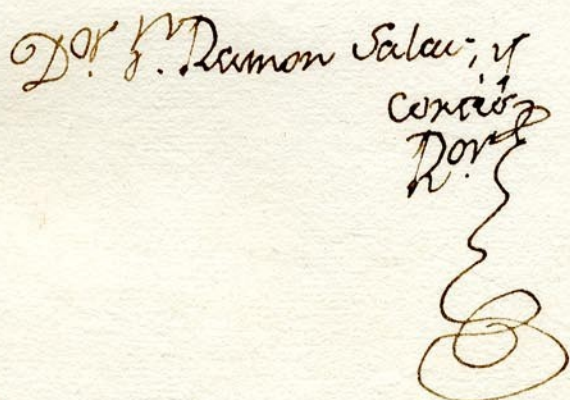 Dor. Dn. Ramon Salas, y
Cortés
Ror